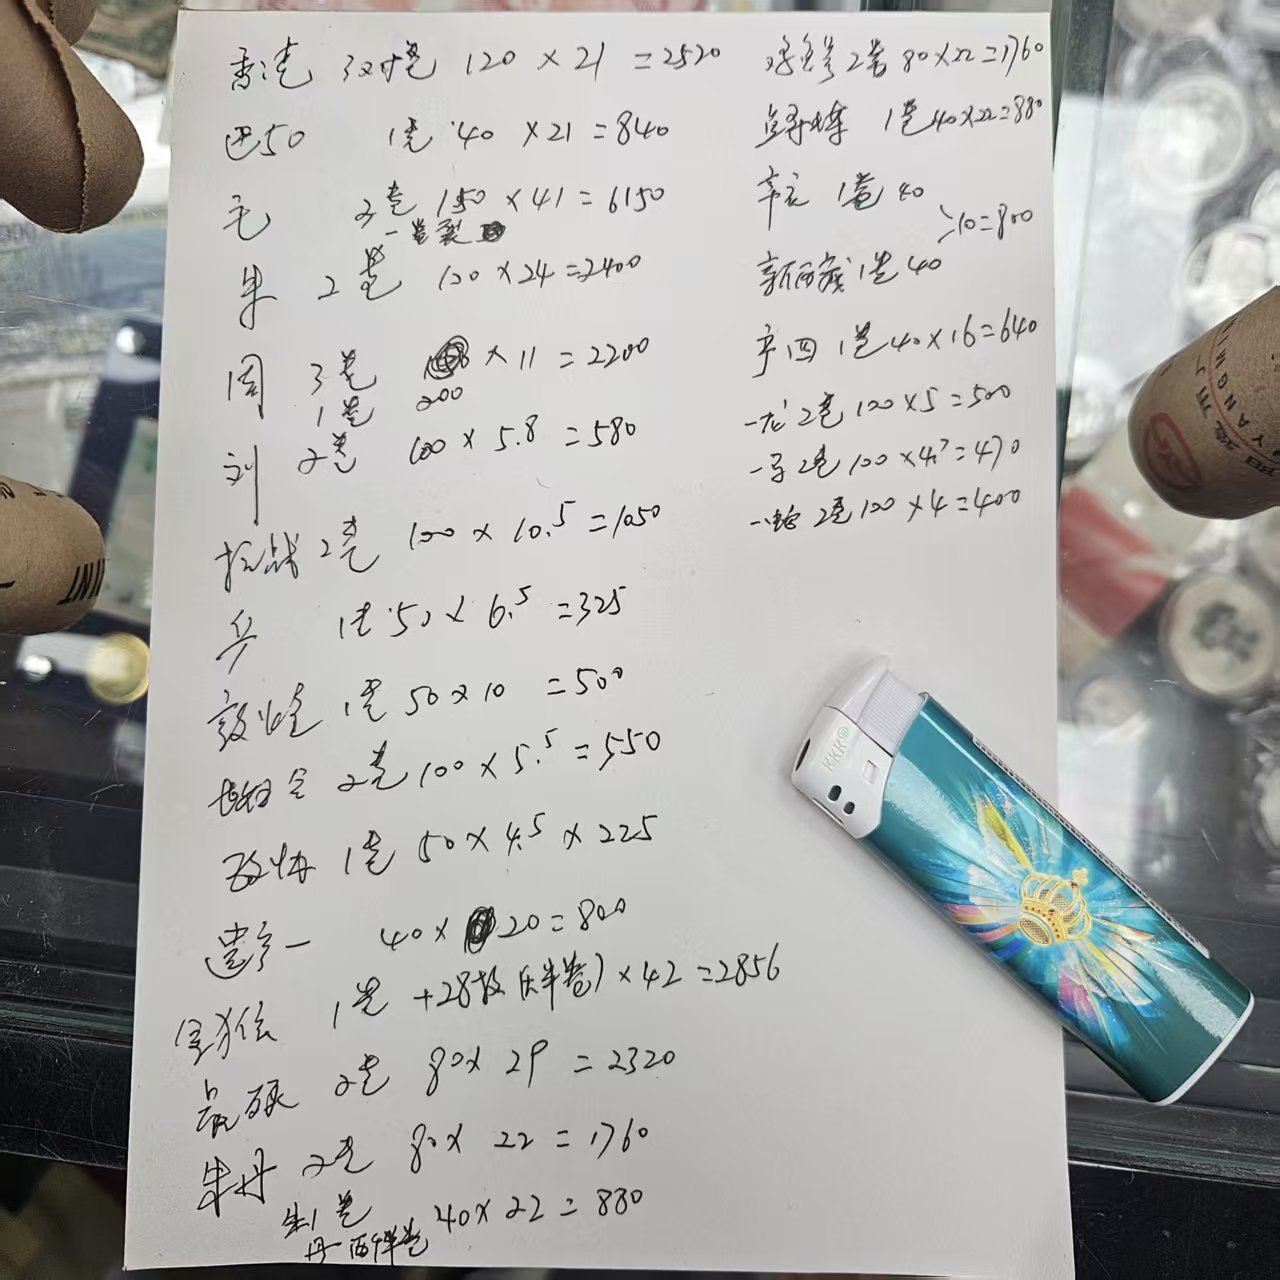 香港 3对卷 120 × 21 = 2520
巴50 1卷 40 × 21 = 840
毛 3卷 150 × 41 = 6150
一卷裂
朱 2卷 100 × 24 = 2400
周 3卷 × 11 = 2200
1卷 200
刘 2卷 100 × 5.8 = 580
抗战 2卷 100 × 10.5 = 1050
兵 1卷 50 × 6.5 = 325
敦煌 1卷 50 × 10 = 500
2卷 100 × 5.5 = 550
政协 1卷 50 × 4.5 × 225
遗产一 40 × 20 = 800
金猴 1卷 +28枚(大半卷) × 42 = 2856
2卷 80 × 29 = 2320
朱丹 2卷 80 × 22 = 1760
朱1卷
丹一两半卷 40 × 22 = 880
2卷 80 × 22 = 1760
1卷 40 × 22 = 880
辛亥 1卷 40
>10 = 800
新西藏 1卷 40
宁四 1卷 40 × 16 = 640
一龙 2卷 100 × 5 = 500
一马 2卷 100 × 4.7 = 470
一蛇 2卷 100 × 4 = 400
KKK®